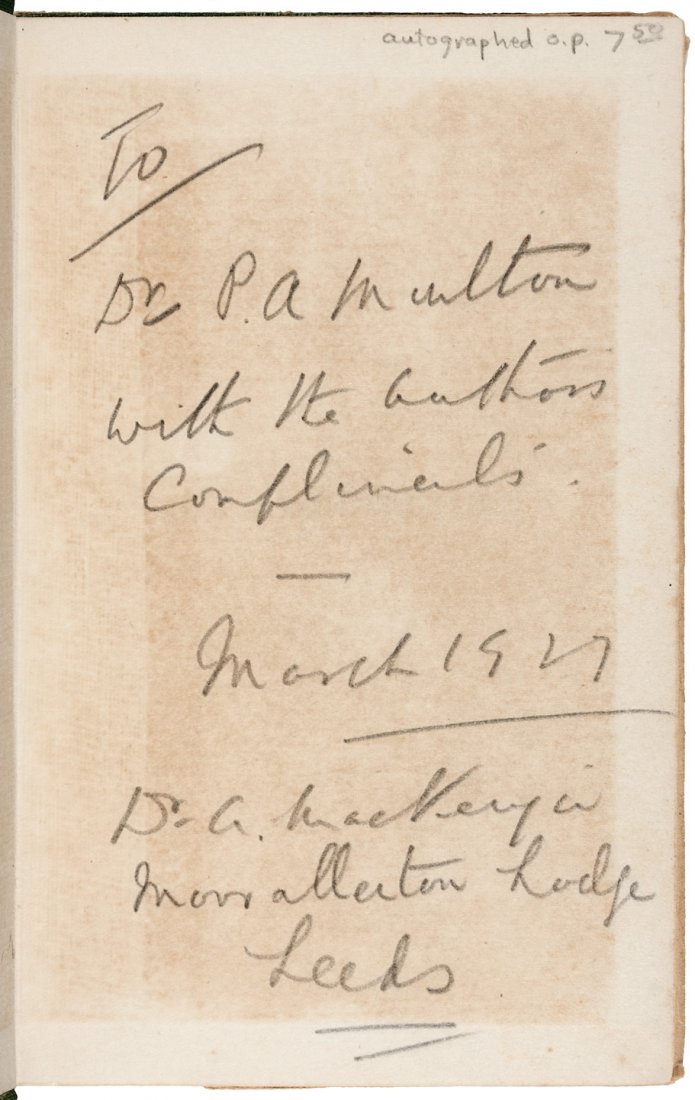 autographed o.p. 7 50
To
Dr P. A Moulton
with the authors
Compliments.
—
March 1927
Dr. A. MacKenzie
Moor allerton Lodge
Leeds